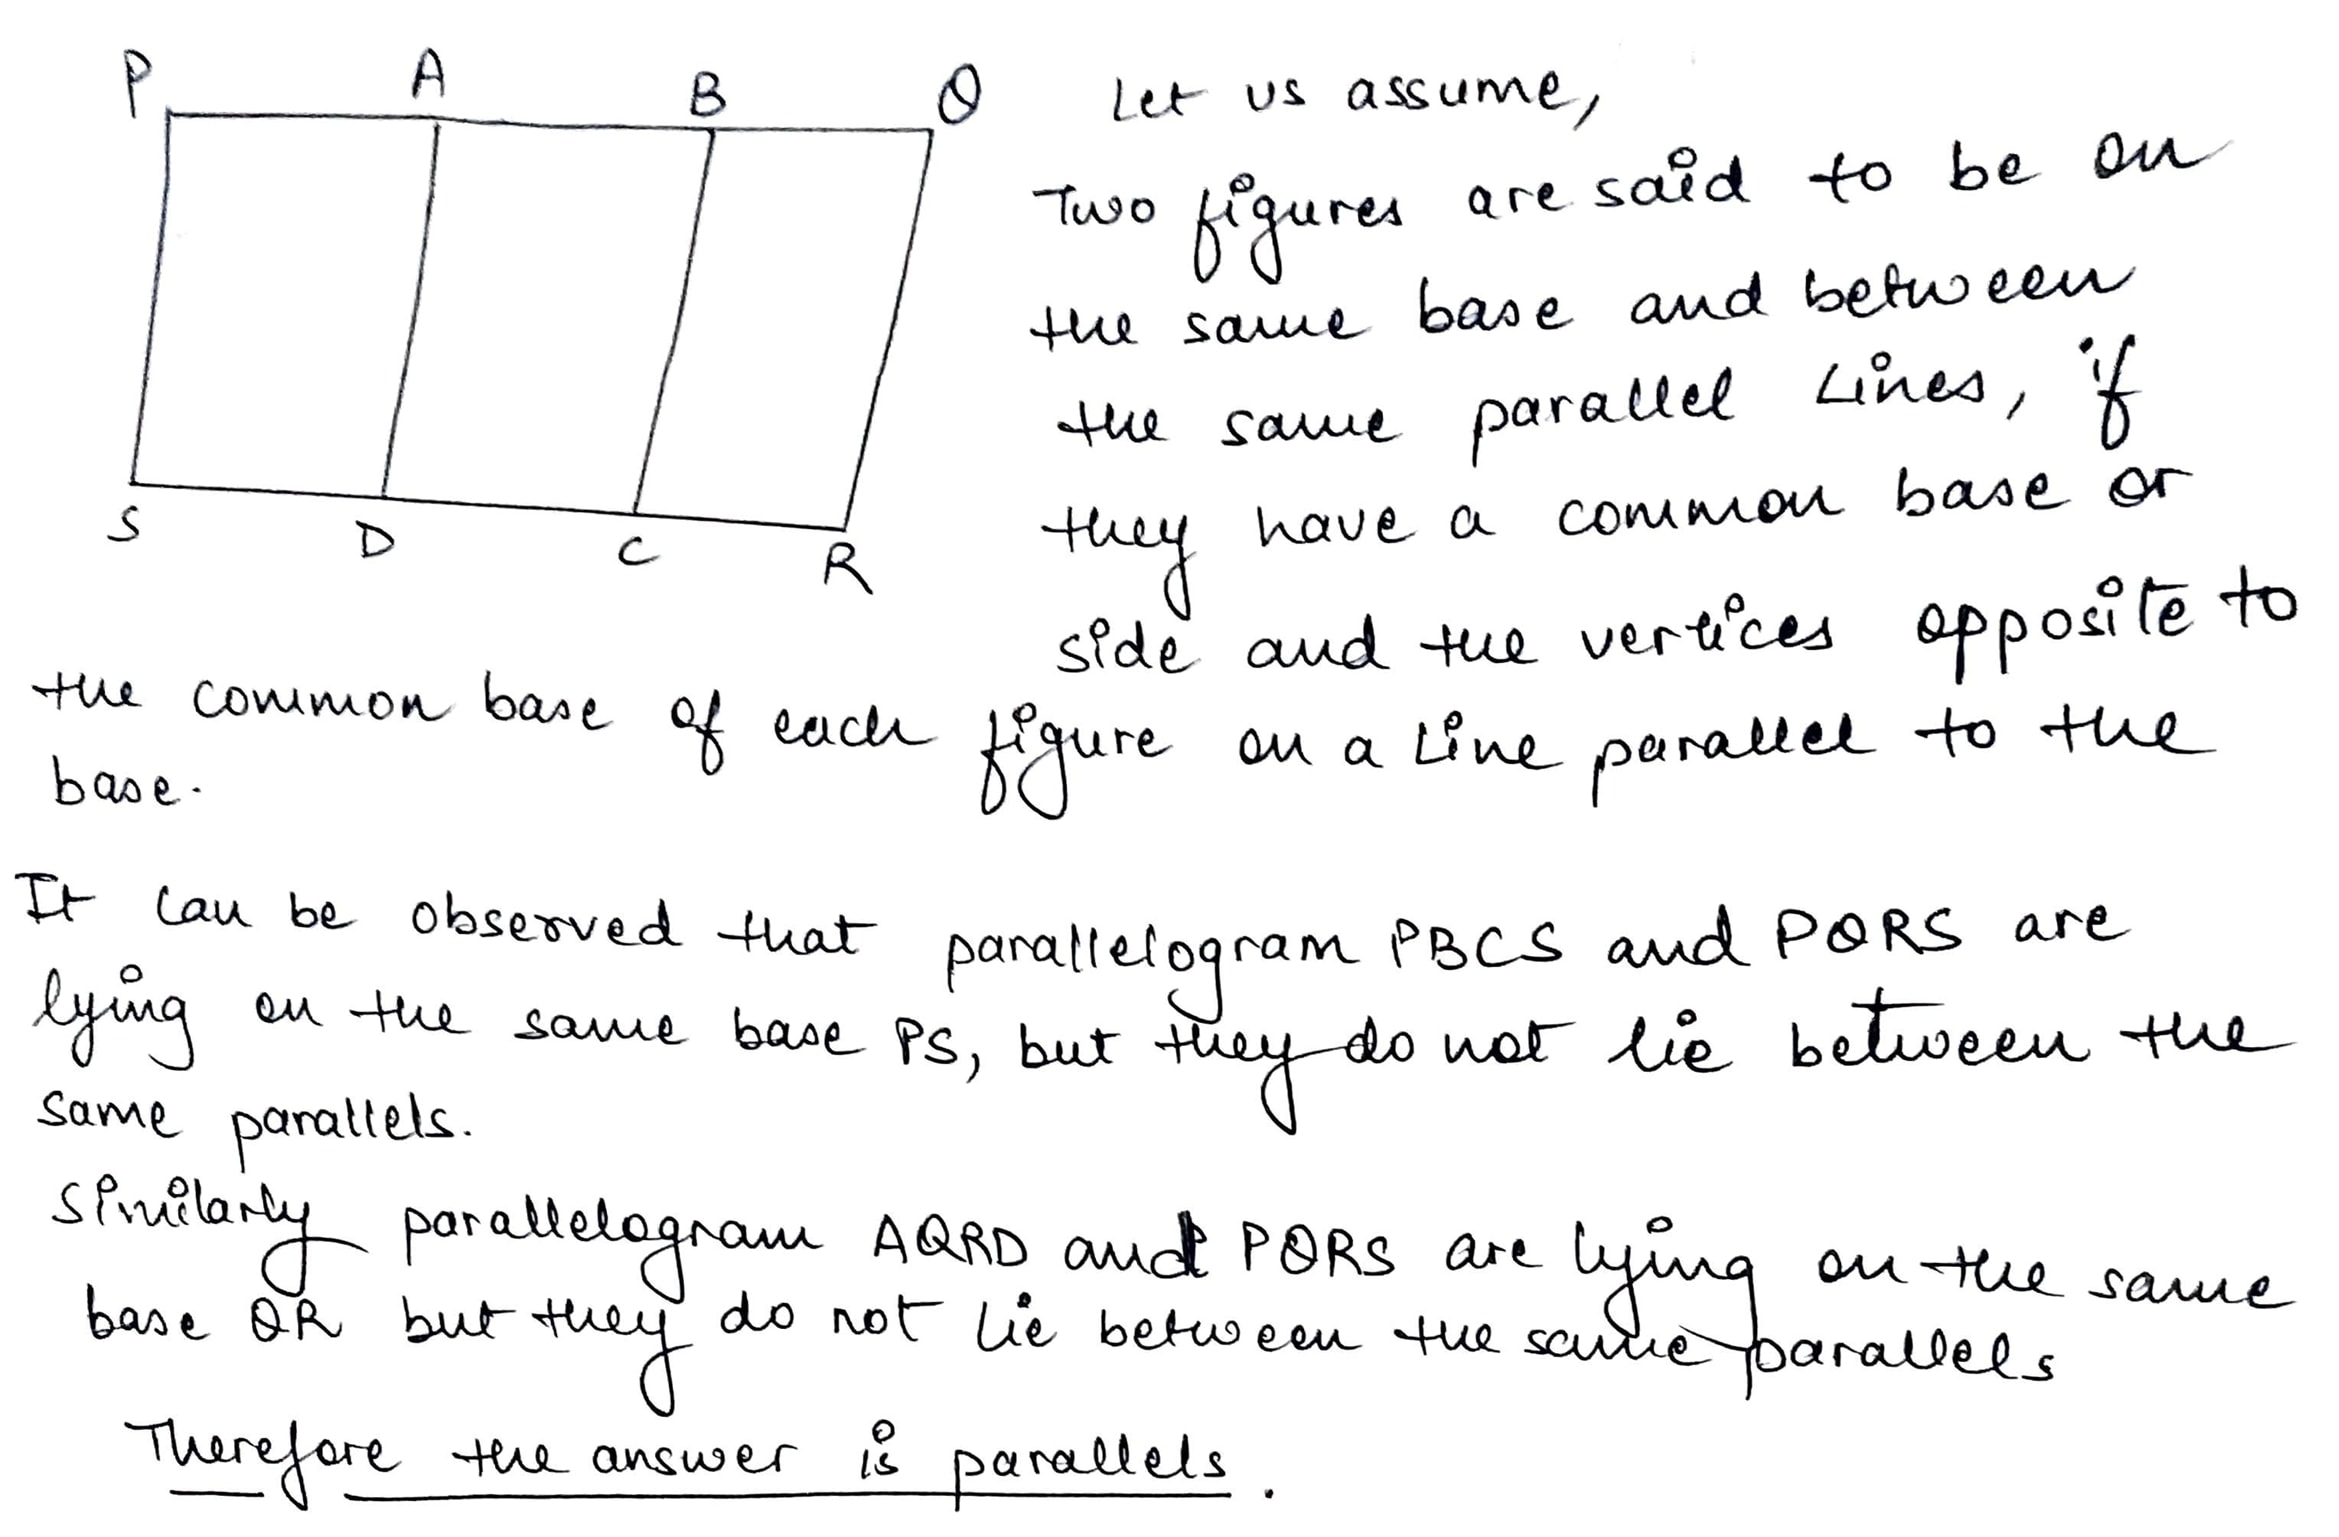 P A B Q
Let us assume,
Two figures are said to be on
the same base and between
the same parallel Lines, if
they have a common base or
S D C R
side and the vertices opposite to
the common base of each figure on a Line parallel to the
base.
It can be observed that parallelogram PBCS and PQRS are
lying on the same base PS, but they do not lie between the
same parallels.
Similarly parallelogram AQRD and PQRS are lying on the same
base QR but they do not lie between the same parallels
Therefore the answer is parallels.